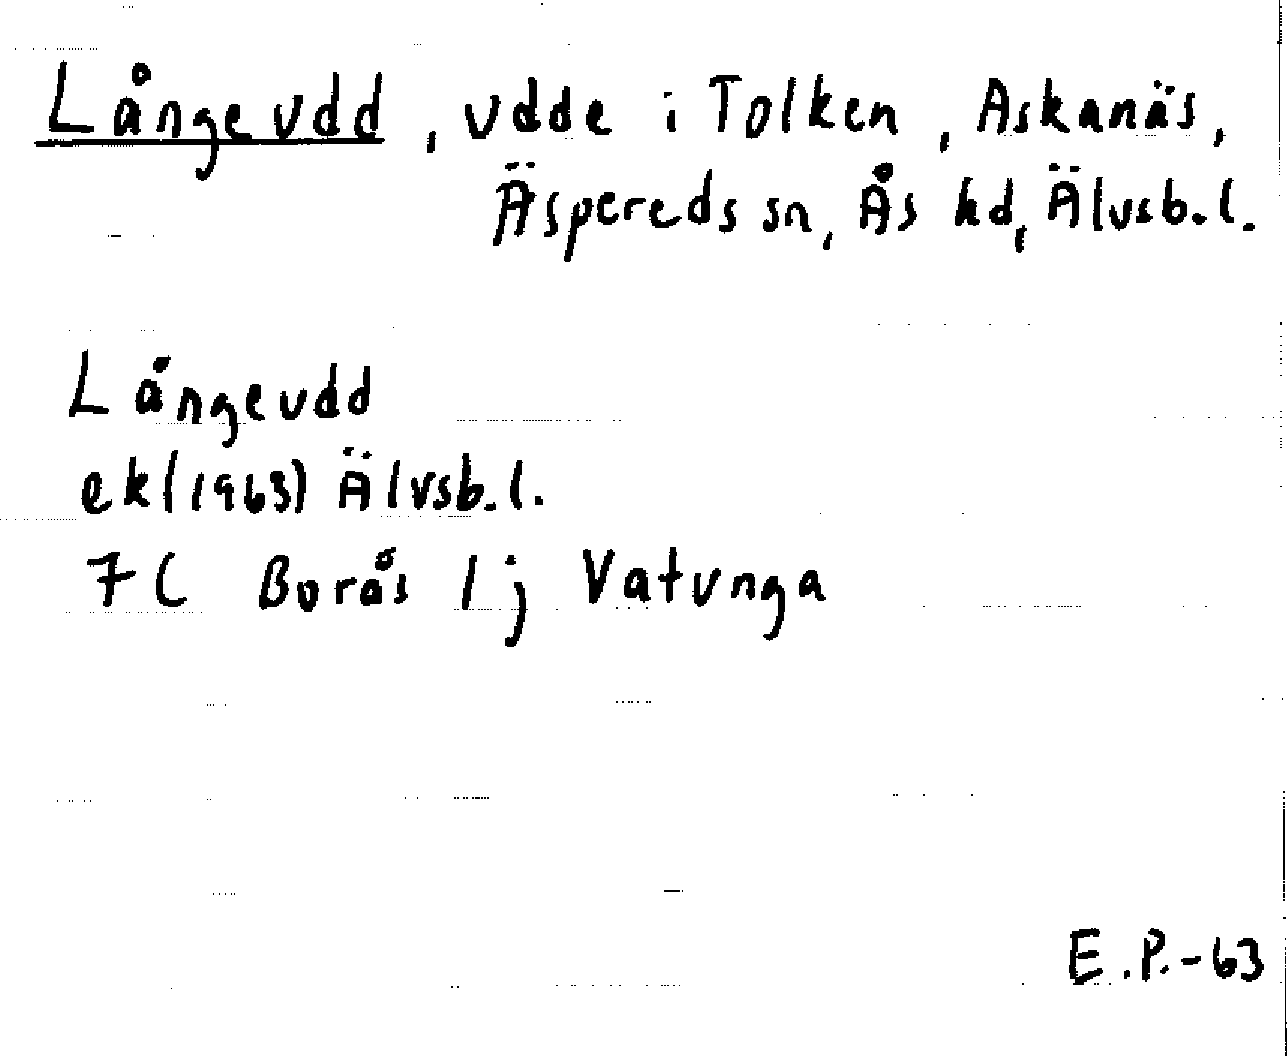 Långeudd, udde i Tolken, Askanäs,
Äspereds sn, Ås hd, Älvsb.l.
Långeudd
ek(1963) Älvsb.l.
7C Borås 1j Vatunga
E.P.-63